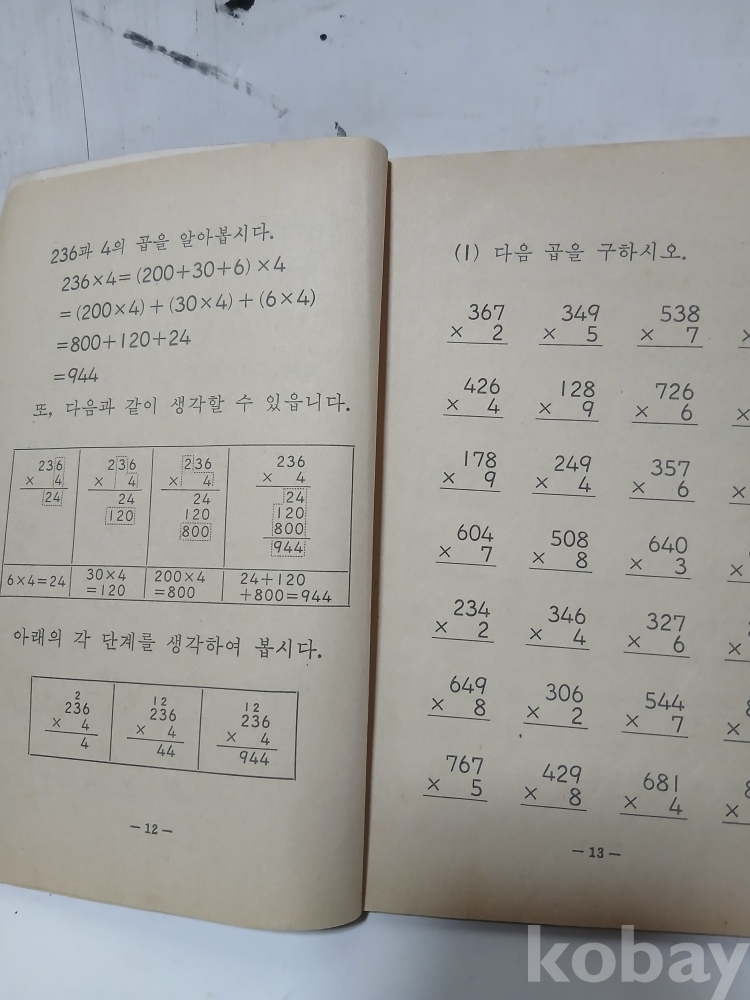 236과 4의 곱을 알아봅시다.
236×4=(200+30+6)×4
=(200×4)+(30×4)+(6×4)
=800+120+24
=944
또, 다음과 같이 생각할 수 있읍니다.
236
× 4
24
6×4=24
236
× 4
24
120
30×4
=120
236
× 4
24
120
800
200×4
=800
236
× 4
24
120
800
944
24+120
+800=944
아래의 각 단계를 생각하여 봅시다.
2
236
× 4
4
12
236
× 4
44
12
236
× 4
944
— 12 —
(1) 다음 곱을 구하시오.
367 349 538
× 2 × 5 × 7 ×
426 128 726
× 4 × 9 × 6 ×
178 249 357
× 9 × 4 × 6 ×
604 508 640
× 7 × 8 × 3 ×
234 346 327
× 2 × 4 × 6 ×
649 306 544
× 8 × 2 × 7 ×
767 429 681
× 5 × 8 × 4 ×
— 13 —
kobay